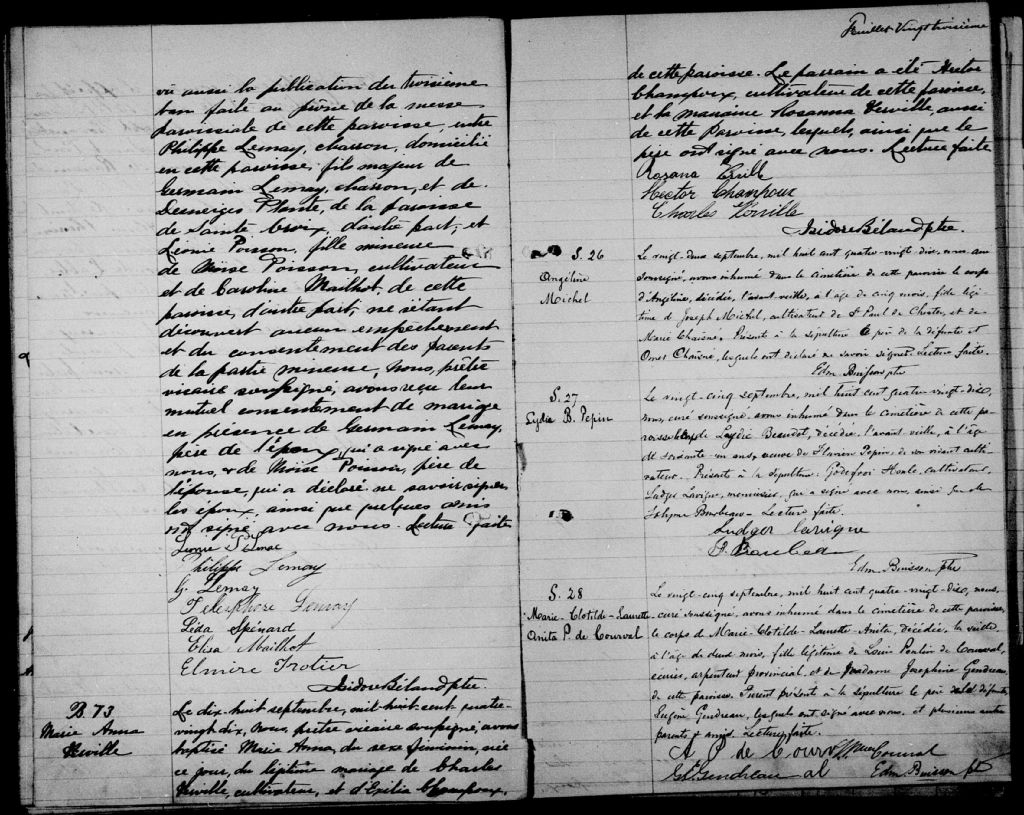 vu aussi la publication du troisième
ban faite au prône de la messe
paroissiale de cette paroisse, entre
Philippe Lemay, charron, domicilié
en cette paroisse, fils majeur de
Germain Lemay, charron, et de
Desneiges Plante, de la paroisse
de Sainte Croix, d'autre part, et
Léonie Poisson, fille mineure
de Moïse Poisson, cultivateur
et de Caroline Mailhot, de cette
paroisse, d'autre part, ne s'étant
découvert aucun empêchement
et du consentement des parents
de la partie mineure, Nous, prêtre
vicaire soussigné, avons reçu leur
mutuel consentement de mariage
en présence de Germain Lemay,
père de l'époux, qui a signé avec
nous, & de Moïse Poisson, père de
l'épouse, qui a déclaré ne savoir signer
les époux, ainsi que quelques amis
ont signé avec nous. Lecture faite
Philippe Lemay
G. Lemay
Télesphore Lemay
Léda Spénard
Elisa Mailhot
Elmire Trotier
Isidore Béland ptre.
B. 73
Marie Anna
Verville
Le dix-huit septembre, mil-huit-cent-quatre-
vingt-dix, Nous, prêtre vicaire soussigné, avons
baptisé Marie Anna, du sexe féminin, née
ce jour, du légitime mariage de Charles
Verville, cultivateur, et d'Exilia Champoux,
Feuillet Vingt troisième
de cette paroisse. Le parrain a été Hector
Champoux, cultivateur de cette paroisse,
et la marraine Rosanna Verville, aussi
de cette Paroisse, lesquels, ainsi que le
père ont signé avec nous. Lecture faite
Rosana
Hector Champoux
Charles Verville
Isidore Béland ptre.
S. 26
Angéline
Michel
Le vingt-deux septembre, mil huit cent quatre-vingt-dix, nous curé
soussigné, avons inhumé dans le cimetière de cette paroisse le corps
d'Angéline, décédée, l'avant veille, à l'age de cinq mois, fille légi-
time d Joseph Michel, cultivateur de St Paul de Chester, et de
Marie Chainé. Présents à la sépulture le père de la défunte et
Omer Chainé, lesquels ont déclaré ne savoir signer. Lecture faite.
Edm Buisson ptre
S. 27
Lydia B. Pepin
Le vingt-cinq septembre, mil huit cent quatre-vingt-dix,
nous, curé soussigné avons inhumé dans le cimetière de cette pa-
roisse le corps de Lydie Beaudet, décédée, l'avant veille, à l'âge
de soixante en ans, veuve de Flavien Pepin, de son vivant culti-
vateur. Présents à la sépulture: Godefroi Houle, cultivateur,
Ludger Lavigne, menuisier, qui a signé avec nous, ainsi que
Bourbeau - Lecture faite.
Ludger Lavigne
Edm Buisson Ptre
S. 28
Marie-Clotilde-Laurette
Anita P. de Courval
Le vingt-cinq septembre, mil huit cent quatre-vingt-dix, nous,
curé soussigné, avons inhumé dans le cimetière de cette paroisse,
le corps d Marie-Clotilde-Laurette-Anita, décédée, la veille,
à l'âge de deux mois, fille légitime de Louis Poulin de Courval,
écuier, arpenteur provincial, et de Madame Josephine Gendreau,
de cette paroisse. Furent présents à la sépulture le père de la défunte,
Eugène Gendreau, lesquels ont signé avec nous, et plusieurs autres
parents & amis. Lecture faite.
A P de Courv
Courval
Gendreau
al
Edm Buisson ptre